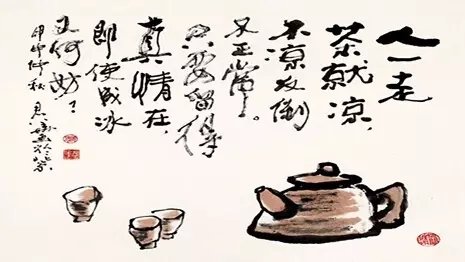 人一走
茶就凉，
不凉反倒
不正常。
只要留得
真情在，
即使成冰
又何妨！
甲申仲秋